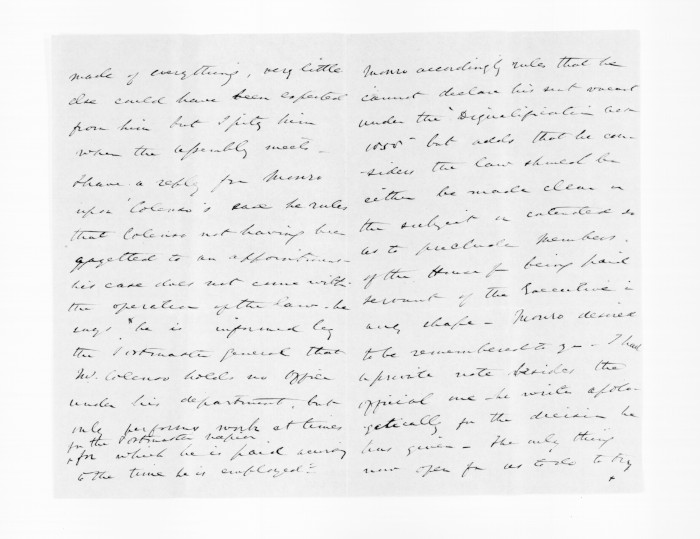 made of everything, very little
else could have been expected
from him but I pity him
when the assembly meets -
I have a reply from Monro
upon Colenso's case he rules
that Colenso not having been
gazetted to an appointment
his case does not come with-
the operation of the Law - he
says "he is informed by
the Postmaster general that
Mr. Colenso holds no Office
under his department, but
only performs work at times
for the Postmaster Napier
& for which he is paid according
to the time he is employed"
Monro accordingly rules that he
cannot declare his seat vacant
under the "Disqualification act
1858" but adds that he con-
-siders the law should be
either be made clear on
the subject or extended so
as to preclude members
of the House for being paid
servant of the Executive in
any shape - Monro desired
to be remembered to you - I had
a private note besides the
official one - he writes apolo-
getically for the decision he
has given - The only thing
now open for us to do to try